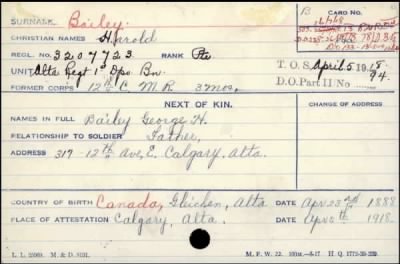 SURNAME Bailey. B
CHRISTIAN NAMES Harold CARD NO.
REGL. NO. 3207723 RANK Pte
UNIT Alta Regt 1st Dpo Bn. T.O.S. April 5 1918.
FORMER CORPS 12th C.M.R. 3 mos. D.O. Part II No. 94.
NEXT OF KIN. CHANGE OF ADDRESS
NAMES IN FULL Bailey George H.
RELATIONSHIP TO SOLDIER Father.
ADDRESS 317 - 12th Ave, E. Calgary, Alta.
COUNTRY OF BIRTH Canada, Gleichen, Alta DATE Apr 23rd 1888
PLACE OF ATTESTATION Calgary, Alta. DATE Apr 5th 1918.
M. F. W. 22.